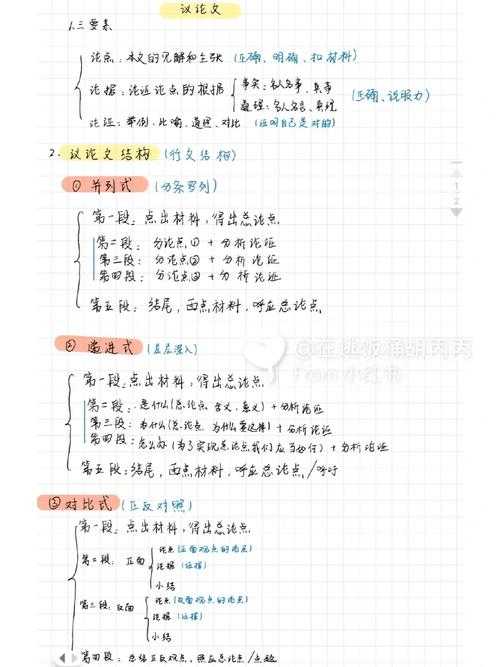 议论文
1.三要素
论点:本文的见解和主张 (正确、明确、扣材料)
论据:论证论点的根据
事实:名人名事、真事
道理:名人名言、真理
(正确、说服力)
论证:举例、比喻、道理、对比 (证明自己是对的)
2. 议论文结构 (行文结构)
① 并列式 (分条罗列)
第一段:点出材料,得出总论点
第二段:分论点① + 分析论证
第三段:分论点② + 分析论证
第四段:分论点③ + 分析论证
第五段:结尾,西点材料,呼应总论点
② 递进式 (层层深入)
第一段:点出材料,得出总论点
第二段:是什么(总论点 含义、意义) + 分析论证
第三段:为什么(总论点 为什么要这样) + 分析论证
第四段:怎么办(为了实现总论点我们应当如何) + 分析论证
第五段:结尾,西点材料,呼应总论点/呼吁
③ 对比式 (正反对照)
第一段:点出材料,得出总论点
第二段:正面
论点 (正面观点的论点)
论据 (证据)
小结
第三段:反面
论点 (反面观点的论点)
论据 (证据)
小结
第四段:总结正反观点,照应总论点/点题
@在逃饭桶胡冈冈
From 小红书
1
2